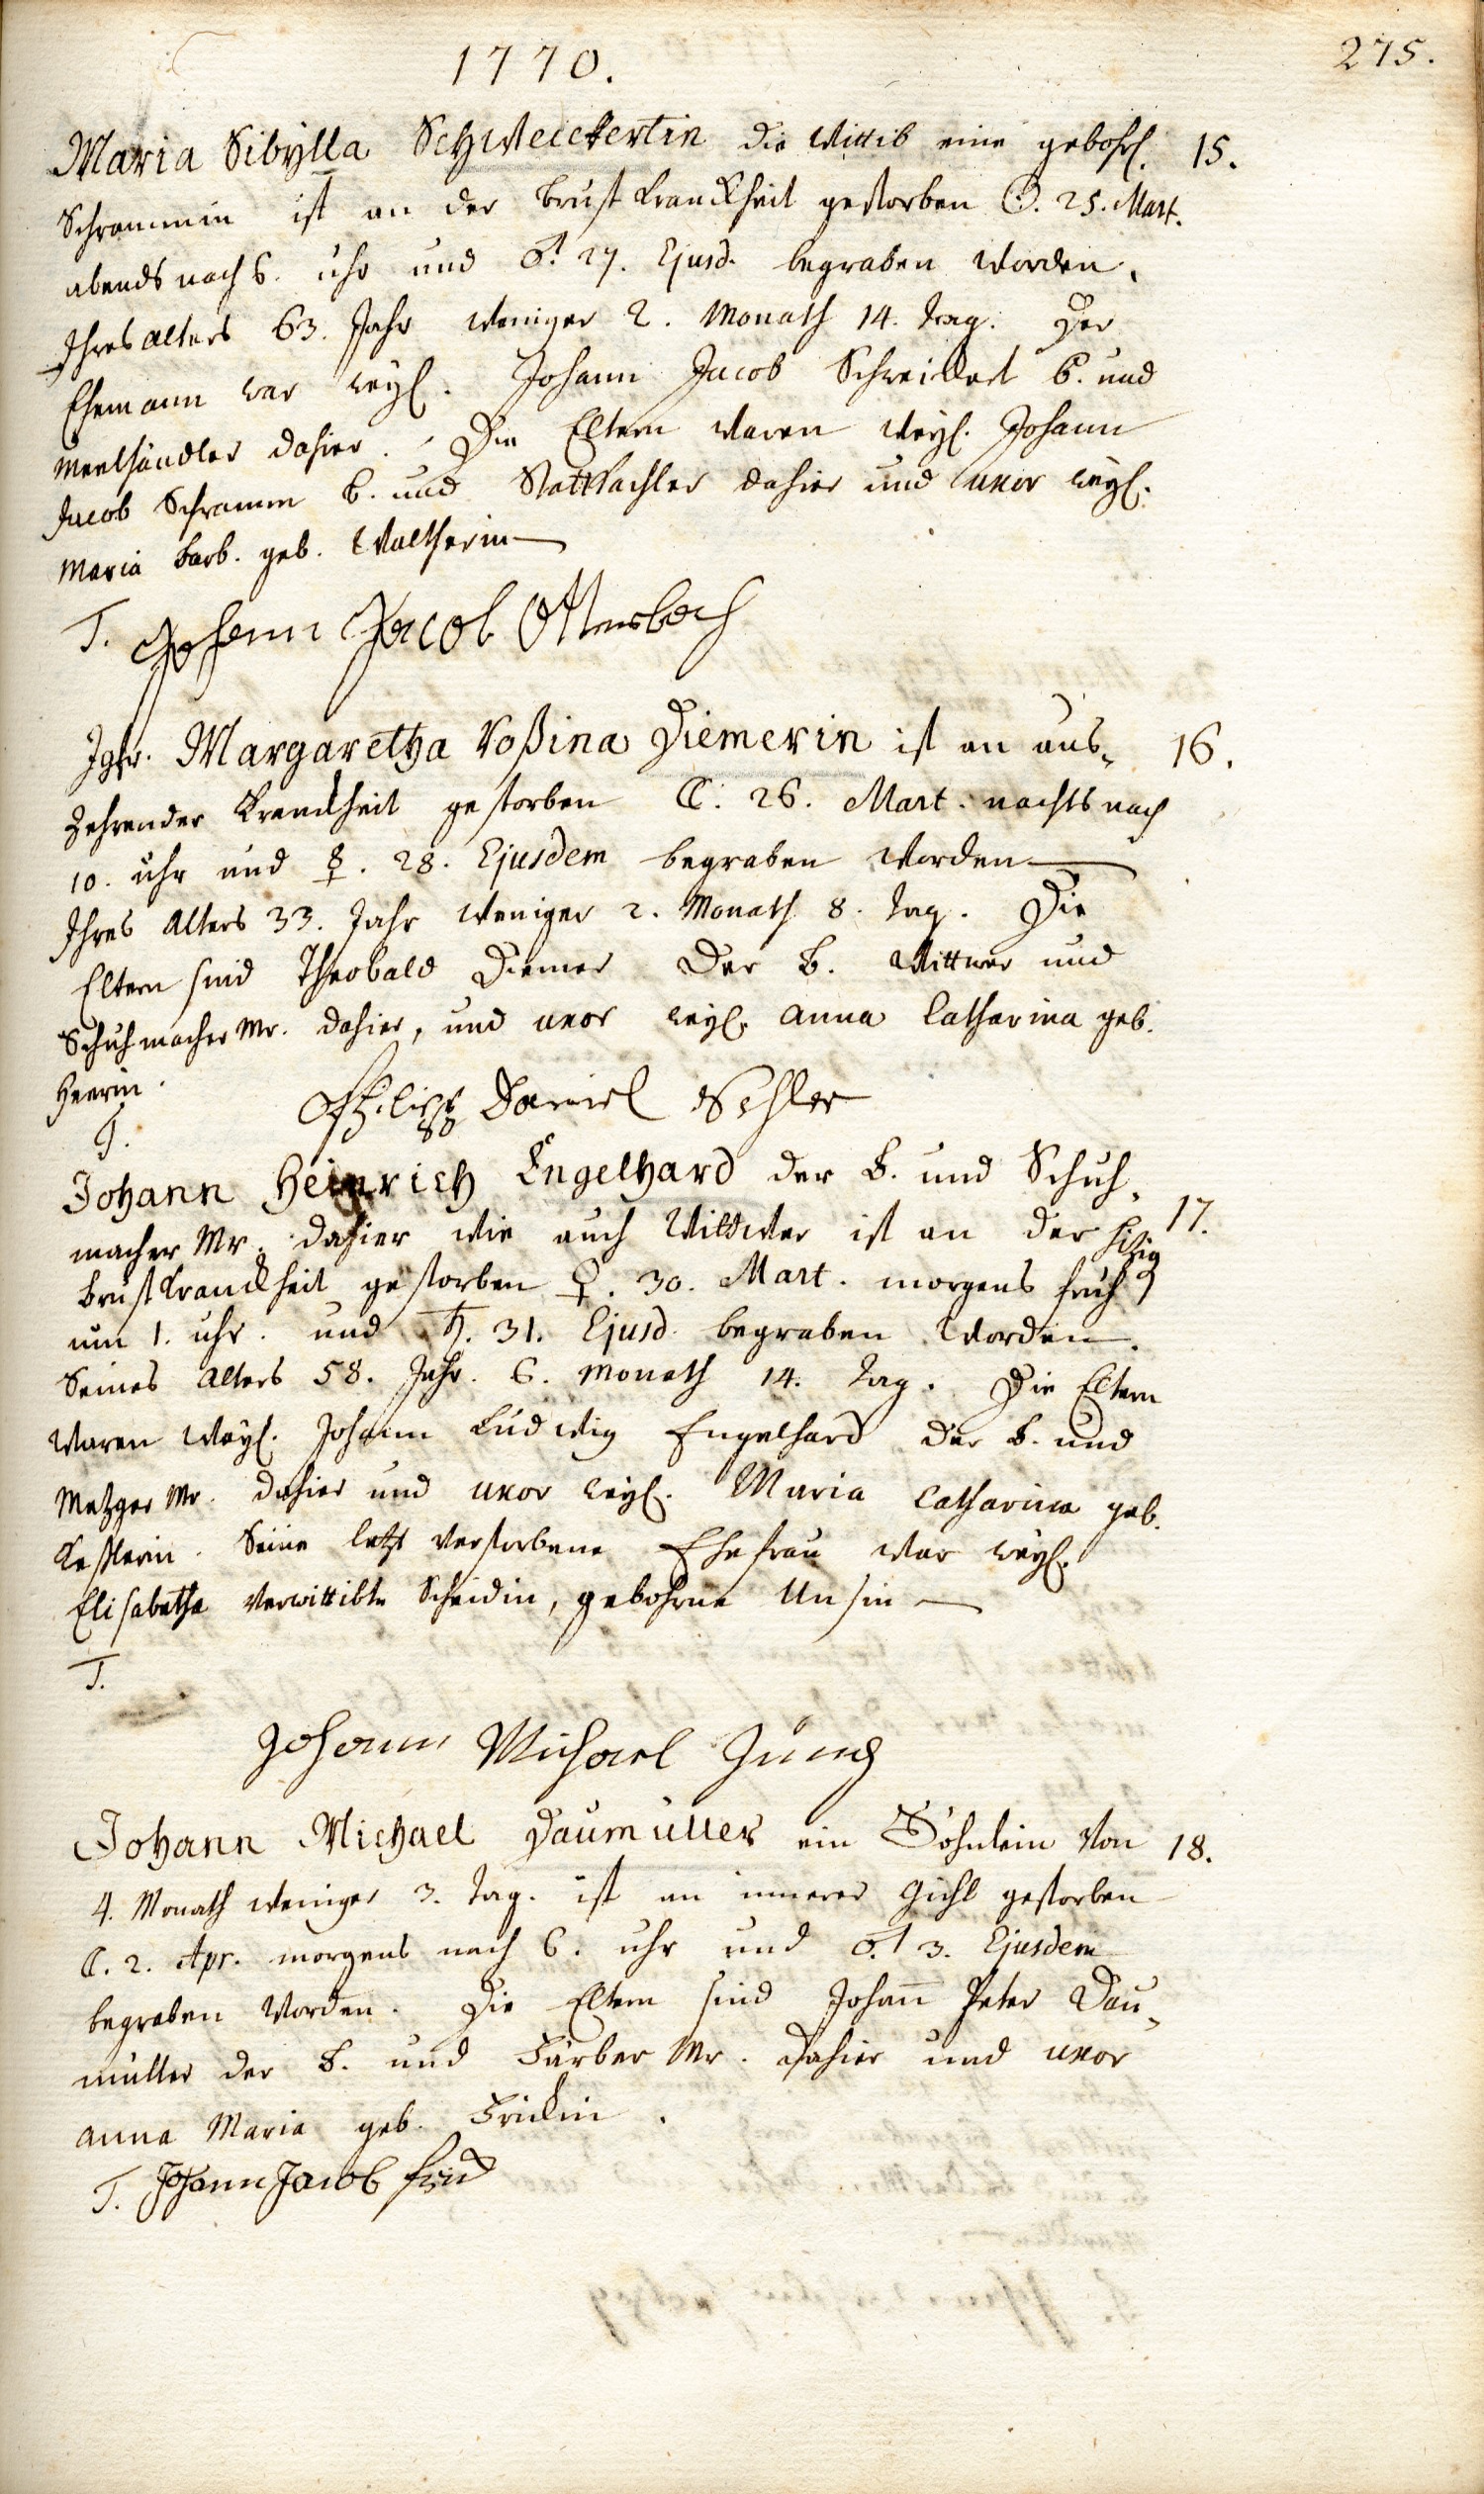 1770.
275.
Maria Sibÿlla Schweickertin die Wittib eine gebohrl. 15.
Schrammin ist an der Brust Kranckheit gestorben ☉. 25. Mart.
abends nach 6. Uhr und ♂. 27. Ejusd. begraben worden,
Ihres alters 63. Jahr weniger 2. Monath 14. Tag. Der
Ehemann war weyl. Johann Jacob Schweickert B. und
Meelhändler dahier. Die Eltern waren weyl. Johann
Jacob Schramm B. und dahier und uxor weyl.
Maria Barb. geb. Waltherin
T. Johann Jacob Ottersbach
Jgfr. Margaretha Roßina Diemerin ist an aus- 16.
zehrender Kranckheit gestorben ☾. 26. Mart. nachts nach
10. Uhr und ☿. 28. Ejusdem begraben worden
Ihres Alters 33. Jahr weniger 2. Monath 8. Tag. Die
Eltern sind Theobald Diemer der B. Wittwer und
Schuhmacher Mr. dahier, und uxor weyl. Anna Catharina geb.
Heerin.
T. Philipp Daniel
Johann Heinrich Engelhard der B. und Schuh-
macher Mr. dahier wie auch Wittwer ist an der hizig 17.
Brust Kranckheit gestorben ♀. 30. Mart. morgens früh
um 1. Uhr. und ♄. 31. Ejusd. begraben worden.
Seines Alters 58. Jahr. 6. Monath 14. Tag. Die Eltern
waren weyl. Johann Ludwig Engelhard der B. und
Metzger Mr. dahier und uxor weyl. Maria Catharina geb.
Keßlerin. Seine letzt verstorbene Ehefrau war weyl.
Elisabetha verwittibte Scheidin, gebohrne Unsin
T.
Johann Michael Jung
Johann Michael Daumüller ein Söhnlein von 18.
4. Monath weniger 3. Tag. ist an innerer Gicht gestorben
☾. 2. Apr. morgens nach 6. Uhr und ♂. 3. Ejusdem
begraben worden. Die Eltern sind Johann̅ Peter Dau-
müller der B. und Färber Mr. dahier und uxor
Anna Maria geb. Frickin.
T. Johann Jacob